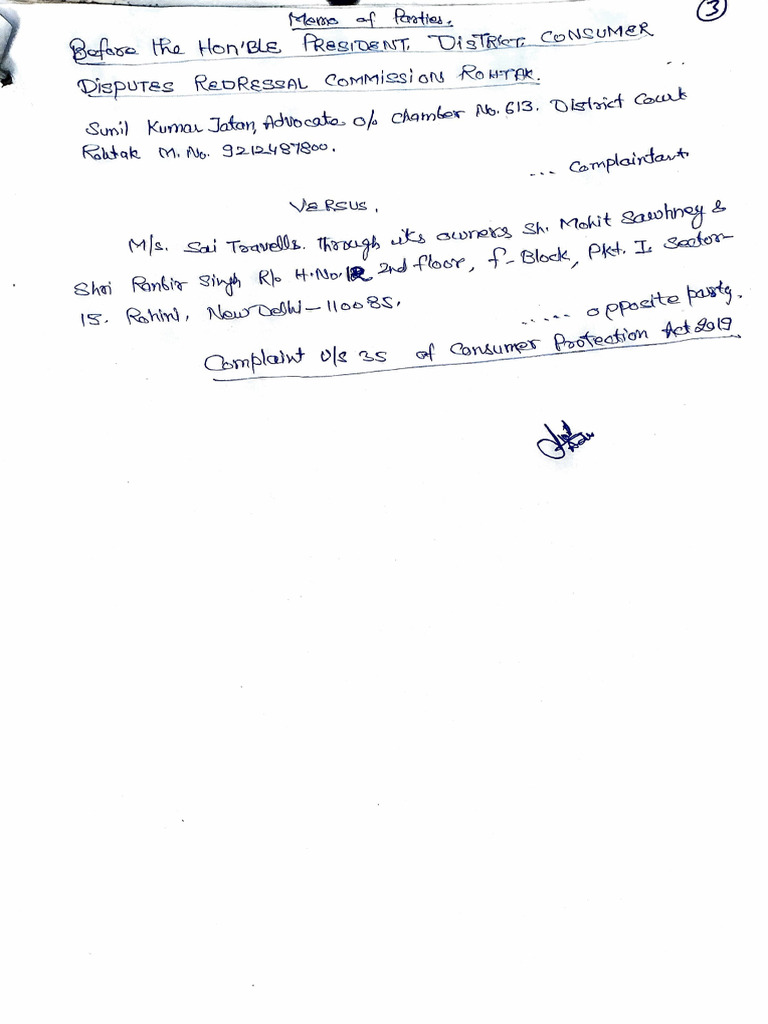 3
Memo of Parties.
Before the HON'BLE PRESIDENT, DISTRICT, CONSUMER
DISPUTES REDRESSAL COMMISSION ROHTAK.
Sunil Kumar Jatan, Advocate o/o Chamber No. 613. District Court
Rohtak M. No. 9212487800.
... Complaintant
VERSUS.
M/s. Sai Travells. Through its owners Sh. Mohit Sawhney &
Shri Ranbir Singh R/o H.No. 2nd floor, f-Block, Pkt. I. Sector-
15. Rohini, New Delhi-110085.
..... opposite party.
Complaint U/s 35 of Consumer Protection Act 2019